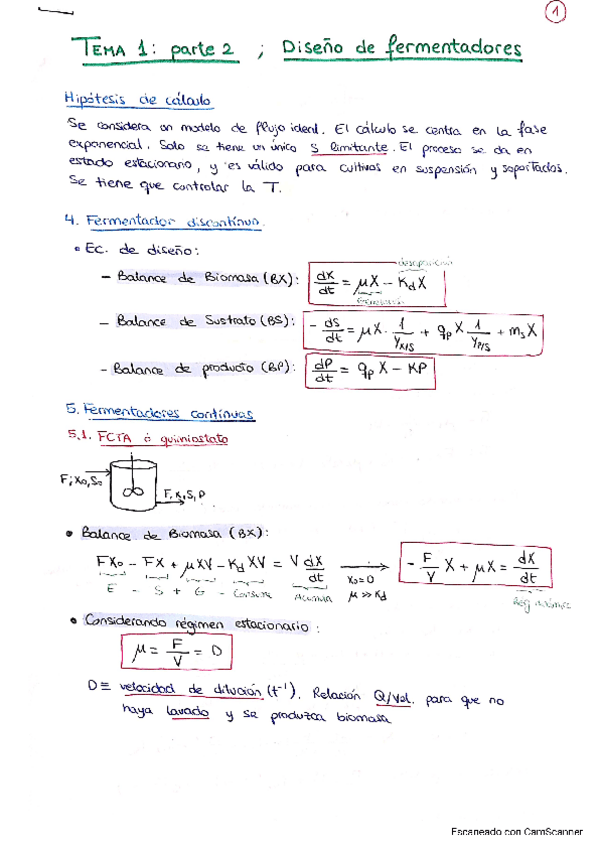 1
TEMA 1: parte 2 ; Diseño de fermentadores
Hipótesis de cálculo
Se considera un modelo de flujo ideal. El cálculo se centra en la fase
exponencial. Solo se tiene un único S limitante. El proceso se da en
estado estacionario, y es válido para cultivos en suspensión y soportados.
Se tiene que controlar la T.
4. Fermentador discontinuo.
• Ec. de diseño:
desaparición
– Balance de Biomasa (BX): dX/dt = μX – KdX
– Balance de Sustrato (BS): – dS/dt = μX · 1/YX/S + qp X 1/YP/S + ms X
– Balance de producto (BP): dP/dt = qp X – KP
5. Fermentadores continuos
5.1. FCTA o quimiostato
F, X0, S0
F, X, S, P
• Balance de Biomasa (BX):
FX0 – FX + μXV – Kd XV = V dX/dt → X0=0 μ >> Kd – F/V X + μX = dX/dt
E - S + G - Consume Acumula
• Considerando régimen estacionario:
μ = F/V = D
D ≡ velocidad de dilución (t⁻¹). Relación Q/Vol. para que no
haya lavado y se produzca biomasa
Escaneado con CamScanner